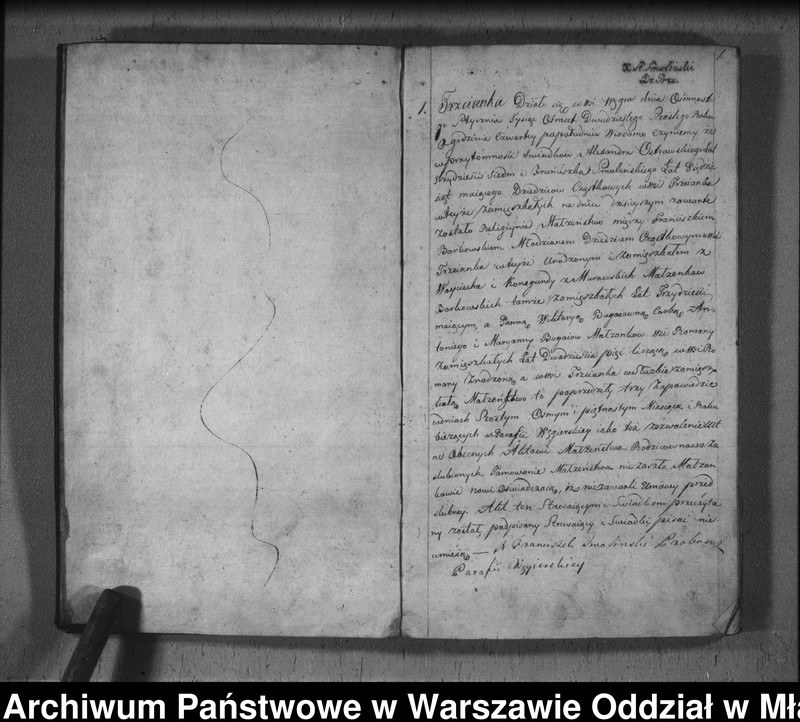 1.
X A Smolinski
1. Trzcianka Działo się w wsi Węgra dnia Ośmnast
Stycznia Tysiąc Ośmset Dwudziestego Szóstego Roku
o godzinie Czwartey popołudniu Wiadomo czyniemy że
w przytomności Świadków Alexandra Ostrowskiego Lat
trzydzieści Siedm i Franciszka Smoleńskiego Lat
maiącego Dziedziców Cząstkowych wsi Trzcianka
w teyże zamięszkałych na dniu dzisieyszym zawarte
zostało Religiynie Małżeństwo między Franciszkiem
Borkowskim Młodzianem Dziedzicem Cząstkowym wsi
Trzcianka w teyże Urodzonym i zamięszkałem z
Woyciecha i Konegundy z Murawskich Małżonków
Borkowskich tamże zamięszkałych Lat Trzydzieści
maiącym, a Panną Wiktoryą Bugaiowną Corką An-
toniego i Maryanny Bugaiow Małżonków wsi Romany
zamięszkałych Lat Dwadzieścia pięć liczącą w wsi Ro
many Zrodzoną a w wsi Trzcianka w Służbie zamięsz
kałą Małżeństwo to poprzedziły trzy Zapowiedzie
w dniach Pierwszym Osmym i piętnastym Miesiąca i Roku
bieżących w Parafii Węgierskiey iako też zezwolenie
ne Obecnych Aktowi Małżeństwa Rodziców nowo Za
ślubionych Tamowanie Małżeństwa nie zaszło Małżon
kowie nowi Oświadczaią, iż nie zawarli Umowy przed
ślubney. Akt ten Stawaiącym i Świadkom przeczyta
ny został, podpisany Stawaiący i Świadki pisać nie
umieią — X Franciszek Smolinski Proboszcz
Parafii Węgierskiey
Archiwum Państwowe w Warszawie Oddział w Mł